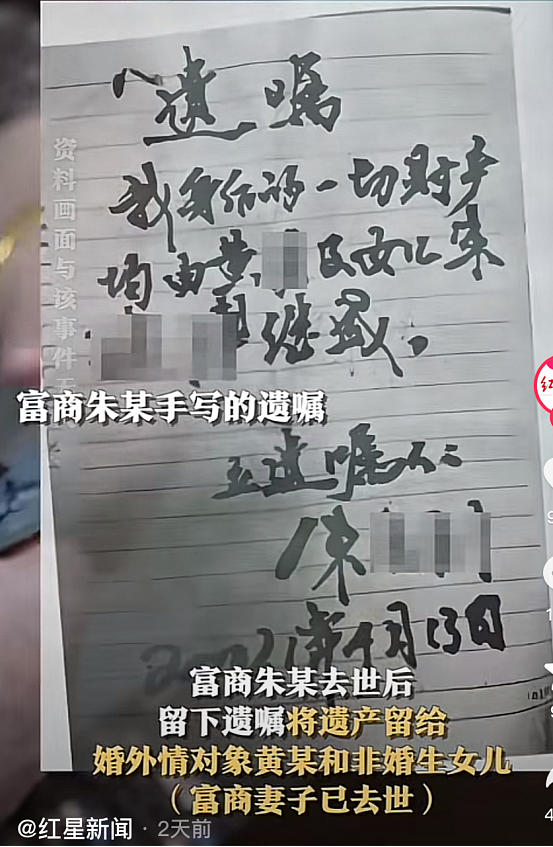 遗嘱
我身后的一切财产
均由黄
及女儿朱
继承,
富商朱某手写的遗嘱
立遗嘱人:
朱
2021年4月13日
资料画面与该事件无
富商朱某去世后
留下遗嘱将遗产留给
婚外情对象黄某和非婚生女儿
(富商妻子已去世)
@红星新闻 · 2天前
红